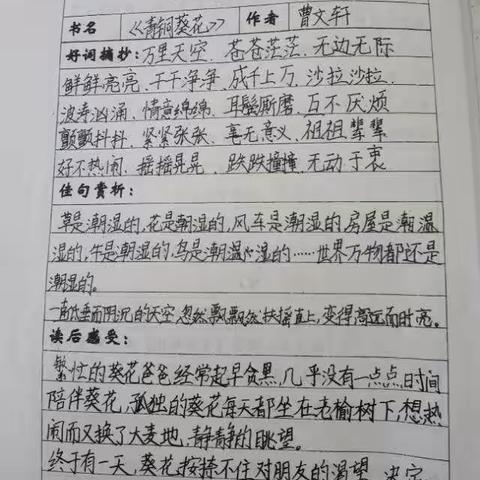 书名 《青铜葵花》 作者 曹文轩
好词摘抄:万里天空、苍苍茫茫、无边无际
鲜鲜亮亮、干干净净、成千上万、沙拉沙拉、
波涛汹涌、情意绵绵、耳鬓厮磨、互不厌烦
颤颤抖抖、紧紧张张、毫无意义、祖祖辈辈
好不热闹、摇摇晃晃、跌跌撞撞、无动于衷
佳句赏析:
草是潮湿的,花是潮湿的,风车是潮湿的,房屋是潮温
湿的,牛是潮湿的,鸟是潮温心湿的……世界万物都还是
潮湿的。
一直低垂而阴沉的天空,忽然飘飘然扶摇直上,变得高远而明亮。
读后感受:
繁忙的葵花爸爸经常起早贪黑,几乎没有一点点时间
陪伴葵花,孤独的葵花每天都坐在老榆树下,想热
闹而又换了大麦地、静静的眺望。
终于有一天,葵花按捺不住对朋友的渴望,决定